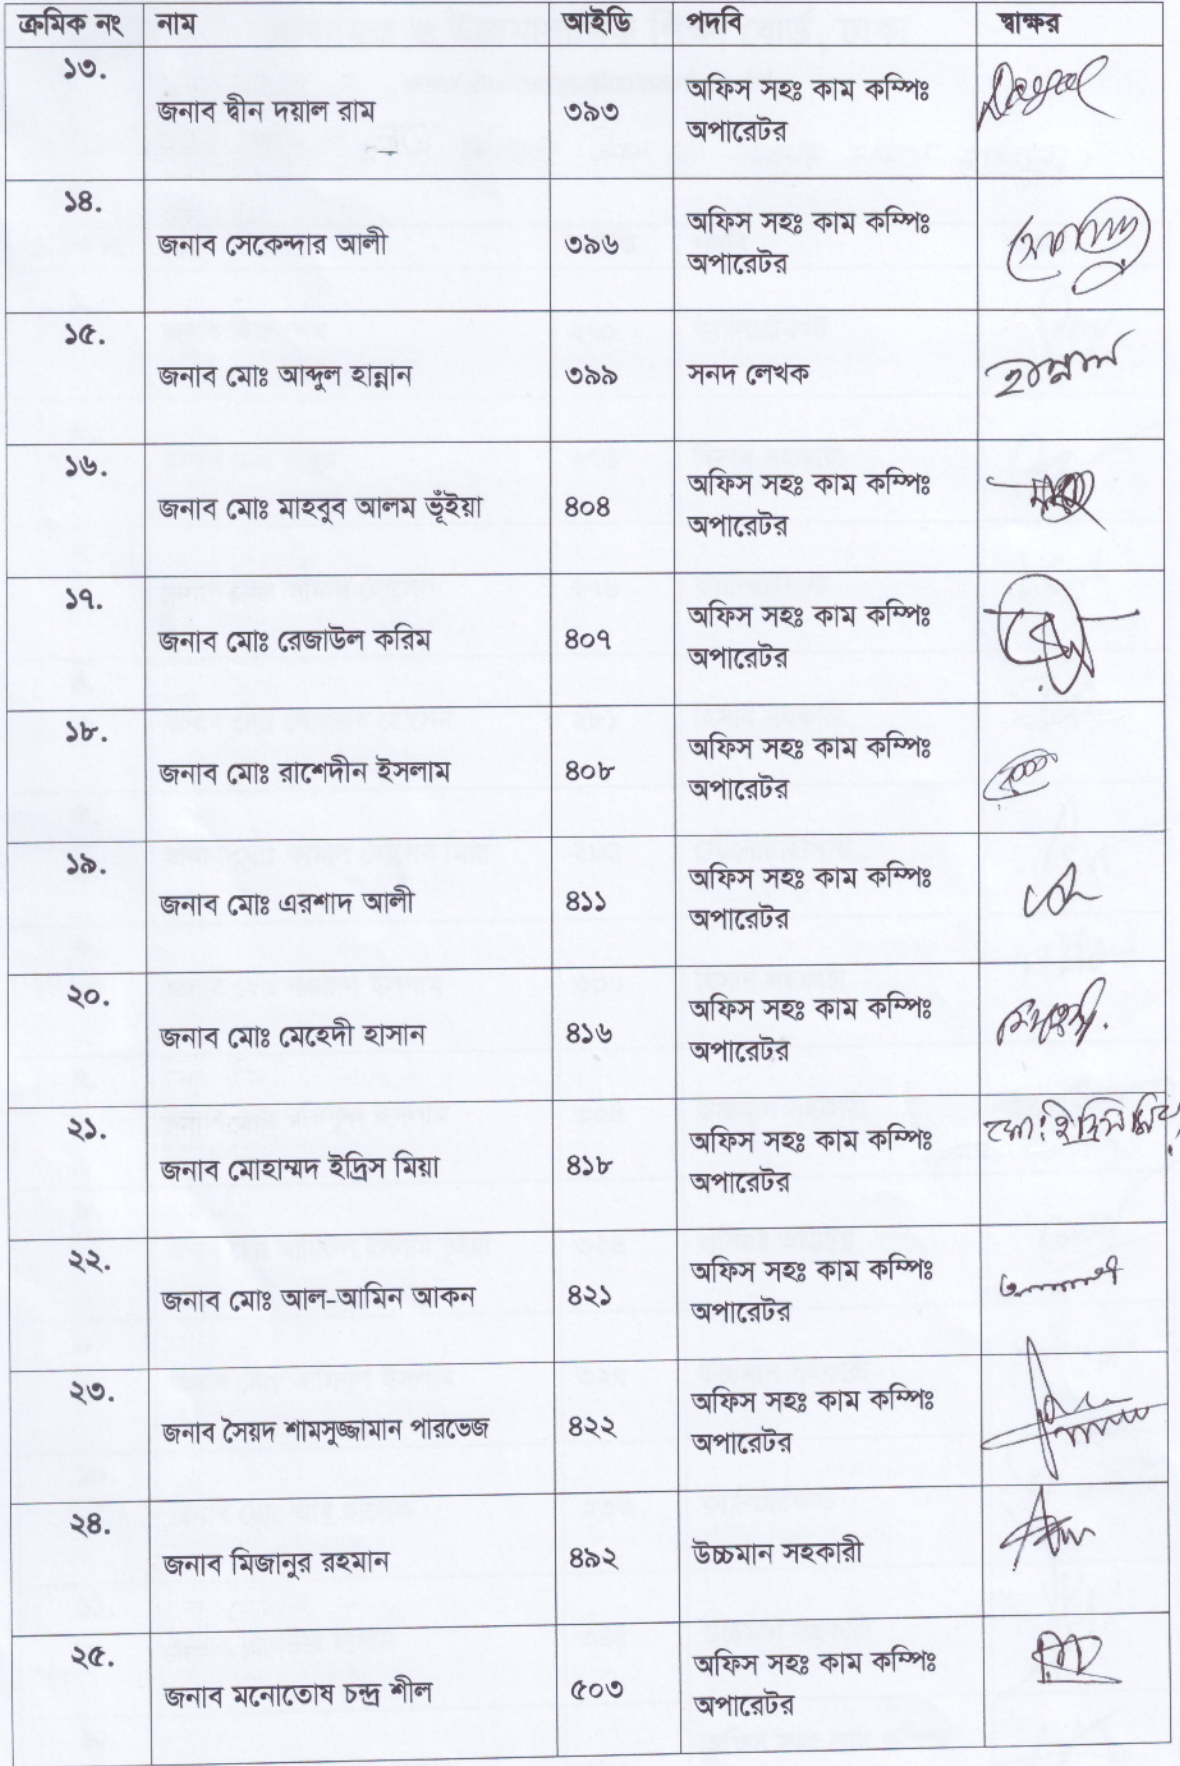 ক্রমিক নং নাম আইডি পদবি স্বাক্ষর
১৩. জনাব দ্বীন দয়াল রাম ৩৯৩ অফিস সহঃ কাম কম্পিঃ
অপারেটর Dayal
১৪. জনাব সেকেন্দার আলী ৩৯৬ অফিস সহঃ কাম কম্পিঃ
অপারেটর
১৫. জনাব মোঃ আব্দুল হান্নান ৩৯৯ সনদ লেখক হান্নান
১৬. জনাব মোঃ মাহবুব আলম ভূঁইয়া ৪০৪ অফিস সহঃ কাম কম্পিঃ
অপারেটর
১৭. জনাব মোঃ রেজাউল করিম ৪০৭ অফিস সহঃ কাম কম্পিঃ
অপারেটর
১৮. জনাব মোঃ রাশেদীন ইসলাম ৪০৮ অফিস সহঃ কাম কম্পিঃ
অপারেটর
১৯. জনাব মোঃ এরশাদ আলী ৪১১ অফিস সহঃ কাম কম্পিঃ
অপারেটর
২০. জনাব মোঃ মেহেদী হাসান ৪১৬ অফিস সহঃ কাম কম্পিঃ
অপারেটর
২১. জনাব মোহাম্মদ ইদ্রিস মিয়া ৪১৮ অফিস সহঃ কাম কম্পিঃ
অপারেটর মোঃ ইদ্রিস মিয়া
২২. জনাব মোঃ আল-আমিন আকন ৪২১ অফিস সহঃ কাম কম্পিঃ
অপারেটর
২৩. জনাব সৈয়দ শামসুজ্জামান পারভেজ ৪২২ অফিস সহঃ কাম কম্পিঃ
অপারেটর
২৪. জনাব মিজানুর রহমান ৪৯২ উচ্চমান সহকারী
২৫. জনাব মনোতোষ চন্দ্র শীল ৫০৩ অফিস সহঃ কাম কম্পিঃ
অপারেটর